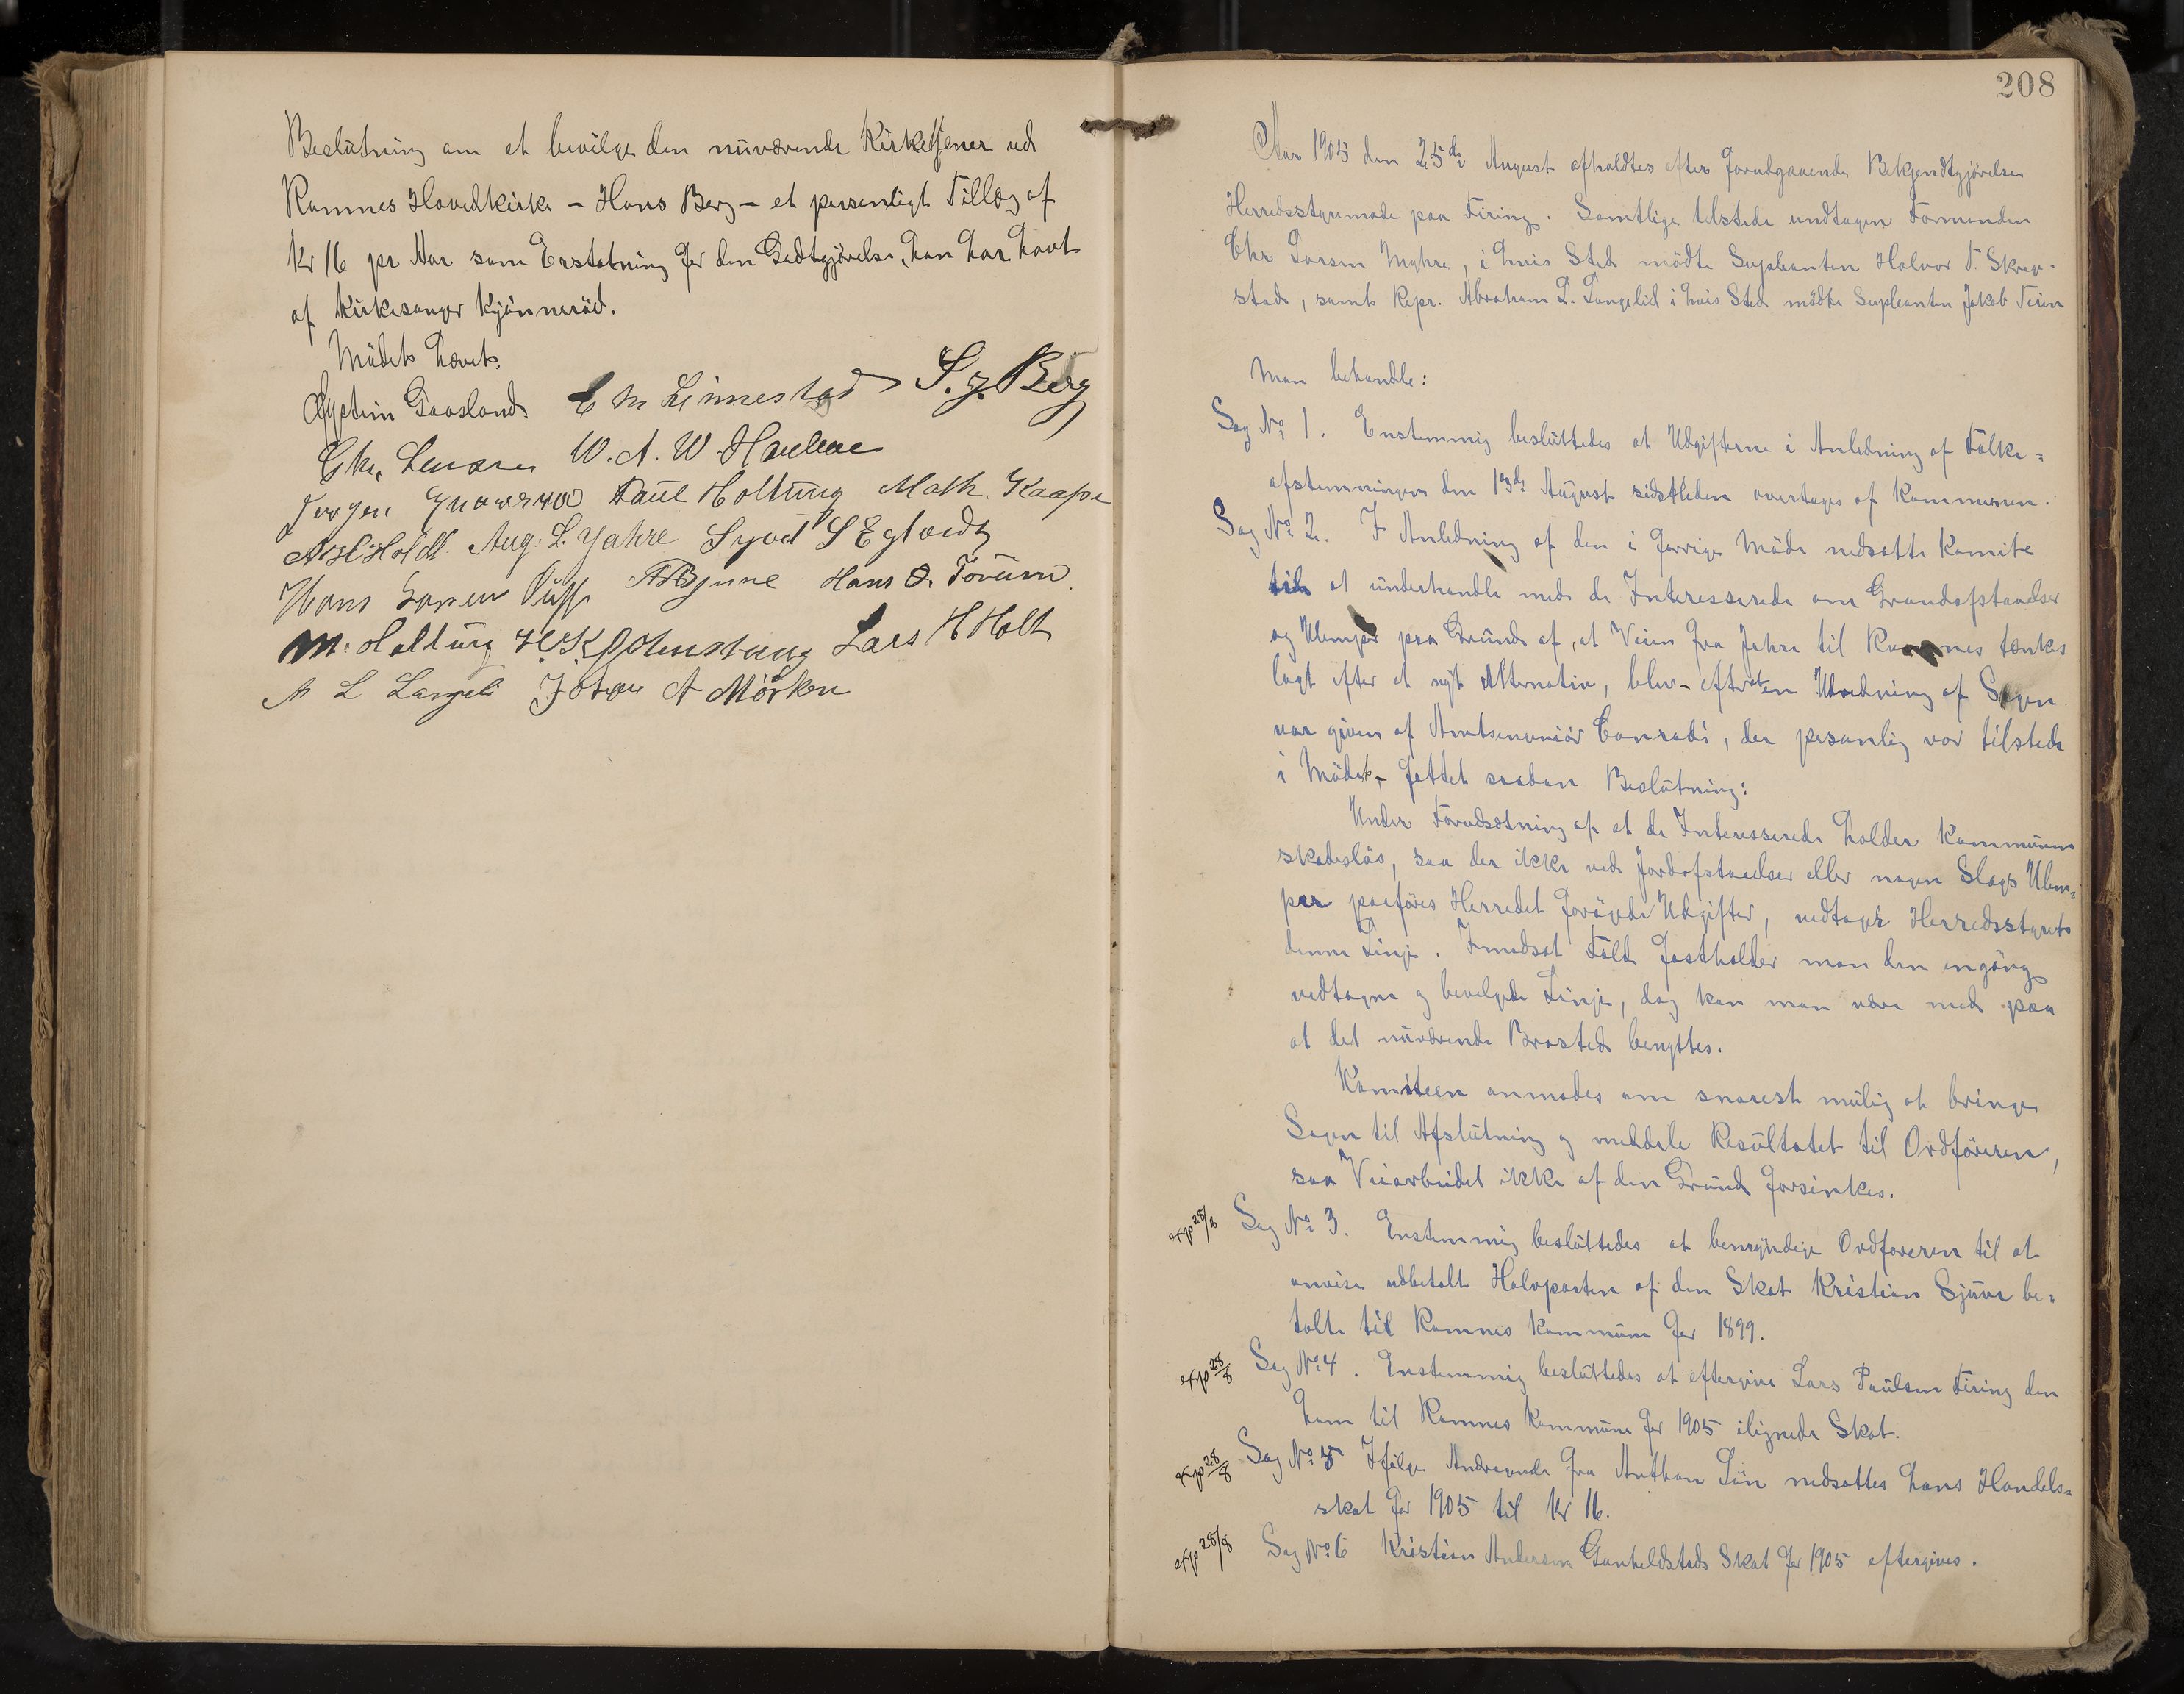 Beslutning om at bevilge den nuværende Kirketjener ved
Ramnes Hovedkirke – Hans Berg – et personligt Tillæg af
Kr 16 pr Aar som Erstatning for den Godtgjörelse, han har havt
af Kirkesanger Kjönneröd.
Mödet hævet.
Øystein Gaasland. E M Linnestad S. J. Berg
Chr. Larsen W. A. W.
Jørgen Paul Holtung Math. Kaape
A H Holdt Aug: L. Jahre Syvert S Eglordt
Hans Larsen A Bjune Hans O. Forum.
M. Holtung H. K. Lars H Holt
A L Langeli Johan A Mörken
208
Aar 1905 den 25de August afholdtes efter forudgaaende Bekjendtgjörelse
Herredsstyremøde paa Firing. Samtlige tilstede undtagen Formanden
Chr Larsen Myhre, i hvis Sted mödte Supleanten Halvor T. Skrap-
stad, samt Repr. Abraham L. Langelid i hvis Sted mödte Supleanten Jakob Teien
Man behandle:
Sag No 1. Enstemmig besluttedes at Udgifterne i Anledning af Folke=
afstemningen den 13de August sidstleden overtages af Kommunen.
Sag No 2. I Anledning af den i forrige Möde nedsatte Komite
til at underhandle med de Interesserede om Grundafstaaelser
og Ulemper paa Grund af, at Veien fra Jahre til Ramnes tænkes
lagt efter et nyt Alternativ, blev – efterat en Udredning af Sagen
var given af Amtsingeniör Conradi, der personlig var tilstede
i Mödet – fattet saadan Beslutning:
Under Forudsætning af at de Interesserede holder Kommunen
skadeslös, saa der ikke ved Jordafstaaelser eller nogen Slags Ulem=
per paaföres Herredet forögede Udgifter, vedtager Herredsstyret
denne Linje. I modsat Fald fastholder man den engang
vedtagne og bevilgede Linje, dog kan man være med paa
at det nuværende Brosted benyttes.
Komiteen anmodes om snarest mulig at bringe
Sagen til Afslutning og meddele Resultatet til Ordföreren,
saa Veiarbeidet ikke af den Grund forsinkes.
exp 28/8 Sag No 3. Enstemmig besluttedes at bemyndige Ordföreren til at
anvise udbetalt Halvparten af den Skat Kristian Sjuve be=
talte til Ramnes Kommune for 1899.
exp 28/8 Sag No 4. Enstemmig besluttedes at eftergive Lars Paulsen Firing den
ham til Ramnes Kommune for 1905 ilignede Skat.
exp 28/8 Sag No 5 Ifölge Andragende fra Anthon Lön nedsattes hans Handels=
skat for 1905 til Kr 16.
exp 28/8 Sag No 6 Kristian Andersen Gunheldstads Skat for 1905 eftergives.